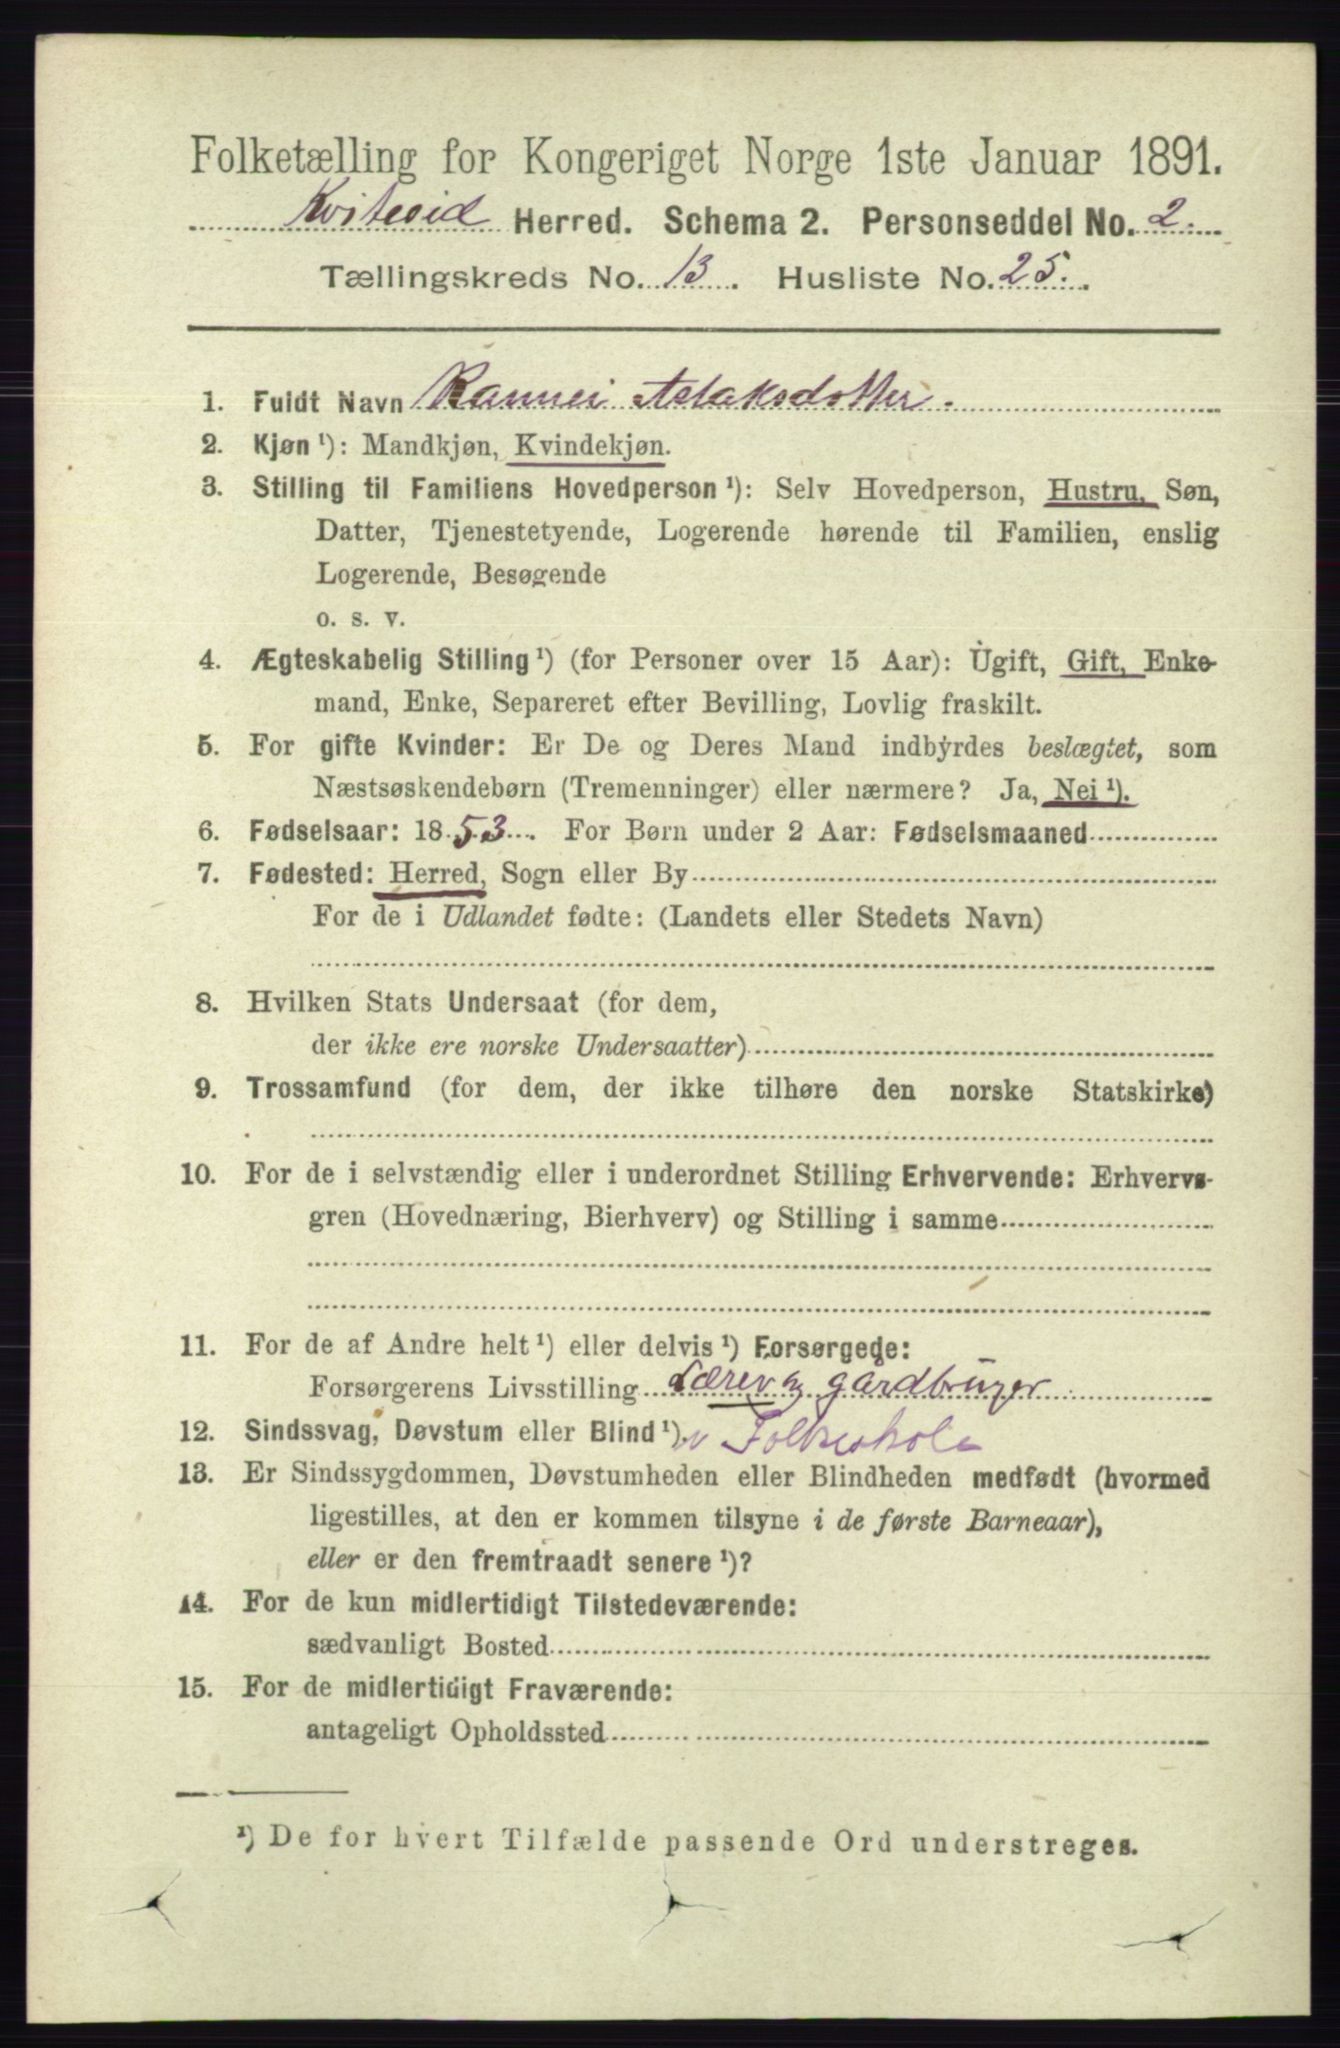 Folketælling for Kongeriget Norge 1ste Januar 1891.
Kviteseid Herred. Schema 2. Personseddel No. 2.
Tællingskreds No. 13. Husliste No. 25.
1. Fuldt Navn Rannei Aslaksdotter.
2. Kjøn ¹): Mandkjøn, Kvindekjøn.
3. Stilling til Familiens Hovedperson ¹): Selv Hovedperson, Hustru, Søn,
Datter, Tjenestetyende, Logerende hørende til Familien, enslig
Logerende, Besøgende
o. s. v.
4. Ægteskabelig Stilling ¹) (for Personer over 15 Aar): Ugift, Gift, Enke-
mand, Enke, Separeret efter Bevilling, Lovlig fraskilt.
5. For gifte Kvinder: Er De og Deres Mand indbyrdes beslægtet, som
Næstsøskendebørn (Tremenninger) eller nærmere? Ja, Nei ¹).
6. Fødselsaar: 1853. For Børn under 2 Aar: Fødselsmaaned
7. Fødested: Herred, Sogn eller By
For de i Udlandet fødte: (Landets eller Stedets Navn)
8. Hvilken Stats Undersaat (for dem,
der ikke ere norske Undersaatter)
9. Trossamfund (for dem, der ikke tilhøre den norske Statskirke)
10. For de i selvstændig eller i underordnet Stilling Erhvervende: Erhvervs-
gren (Hovednæring, Bierhverv) og Stilling i samme
11. For de af Andre helt ¹) eller delvis ¹) Forsørgede:
Forsørgerens Livsstilling Lærer og gardbruger
12. Sindssvag, Døvstum eller Blind ¹). v Folkeskole
13. Er Sindssygdommen, Døvstumheden eller Blindheden medfødt (hvormed
ligestilles, at den er kommen tilsyne i de første Barneaar),
eller er den fremtraadt senere ¹)?
14. For de kun midlertidigt Tilstedeværende:
sædvanligt Bosted
15. For de midlertidigt Fraværende:
antageligt Opholdssted
¹) De for hvert Tilfælde passende Ord understreges.